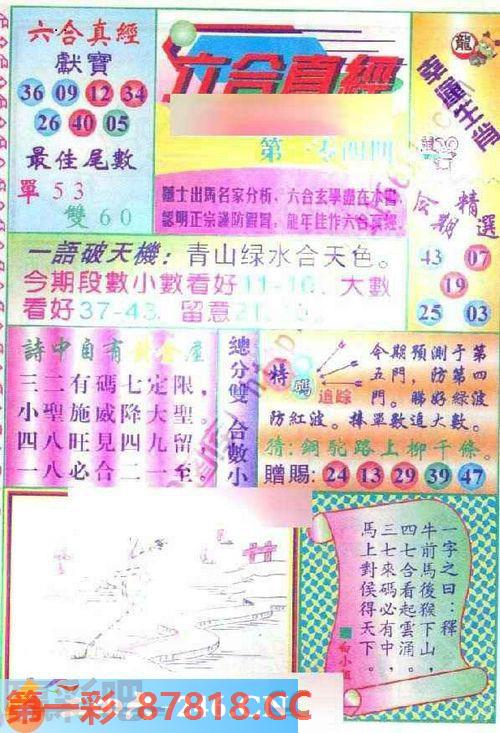 六合真經
獻寶
36 09 12 34
26 40 05
最佳尾數
單 53
雙 60
六合真經
第一零四期
龍
幸運生肖
今期精選
43 07
19
25 03
一語破天機：青山绿水合天色。
今期段數小數看好11-16，大數
看好37-43，留意
詩中自有黃金屋
三二有碼七定限，
小聖施威降大聖。
四八旺見四九留，
一八必合二一至。
總分雙 合數小
特碼
追踪
今期預測于第
五門，防第四
門。睇好綠波
防紅波。捧單數追大數。
猜：銅駝路上柳千條。
贈賜：24 13 29 39 47
一字之曰：釋
牛前馬後猴下山，
四七合看起雲涌。
三七來碼必有中，
馬上對侯得天下。
第一彩 87818.CC